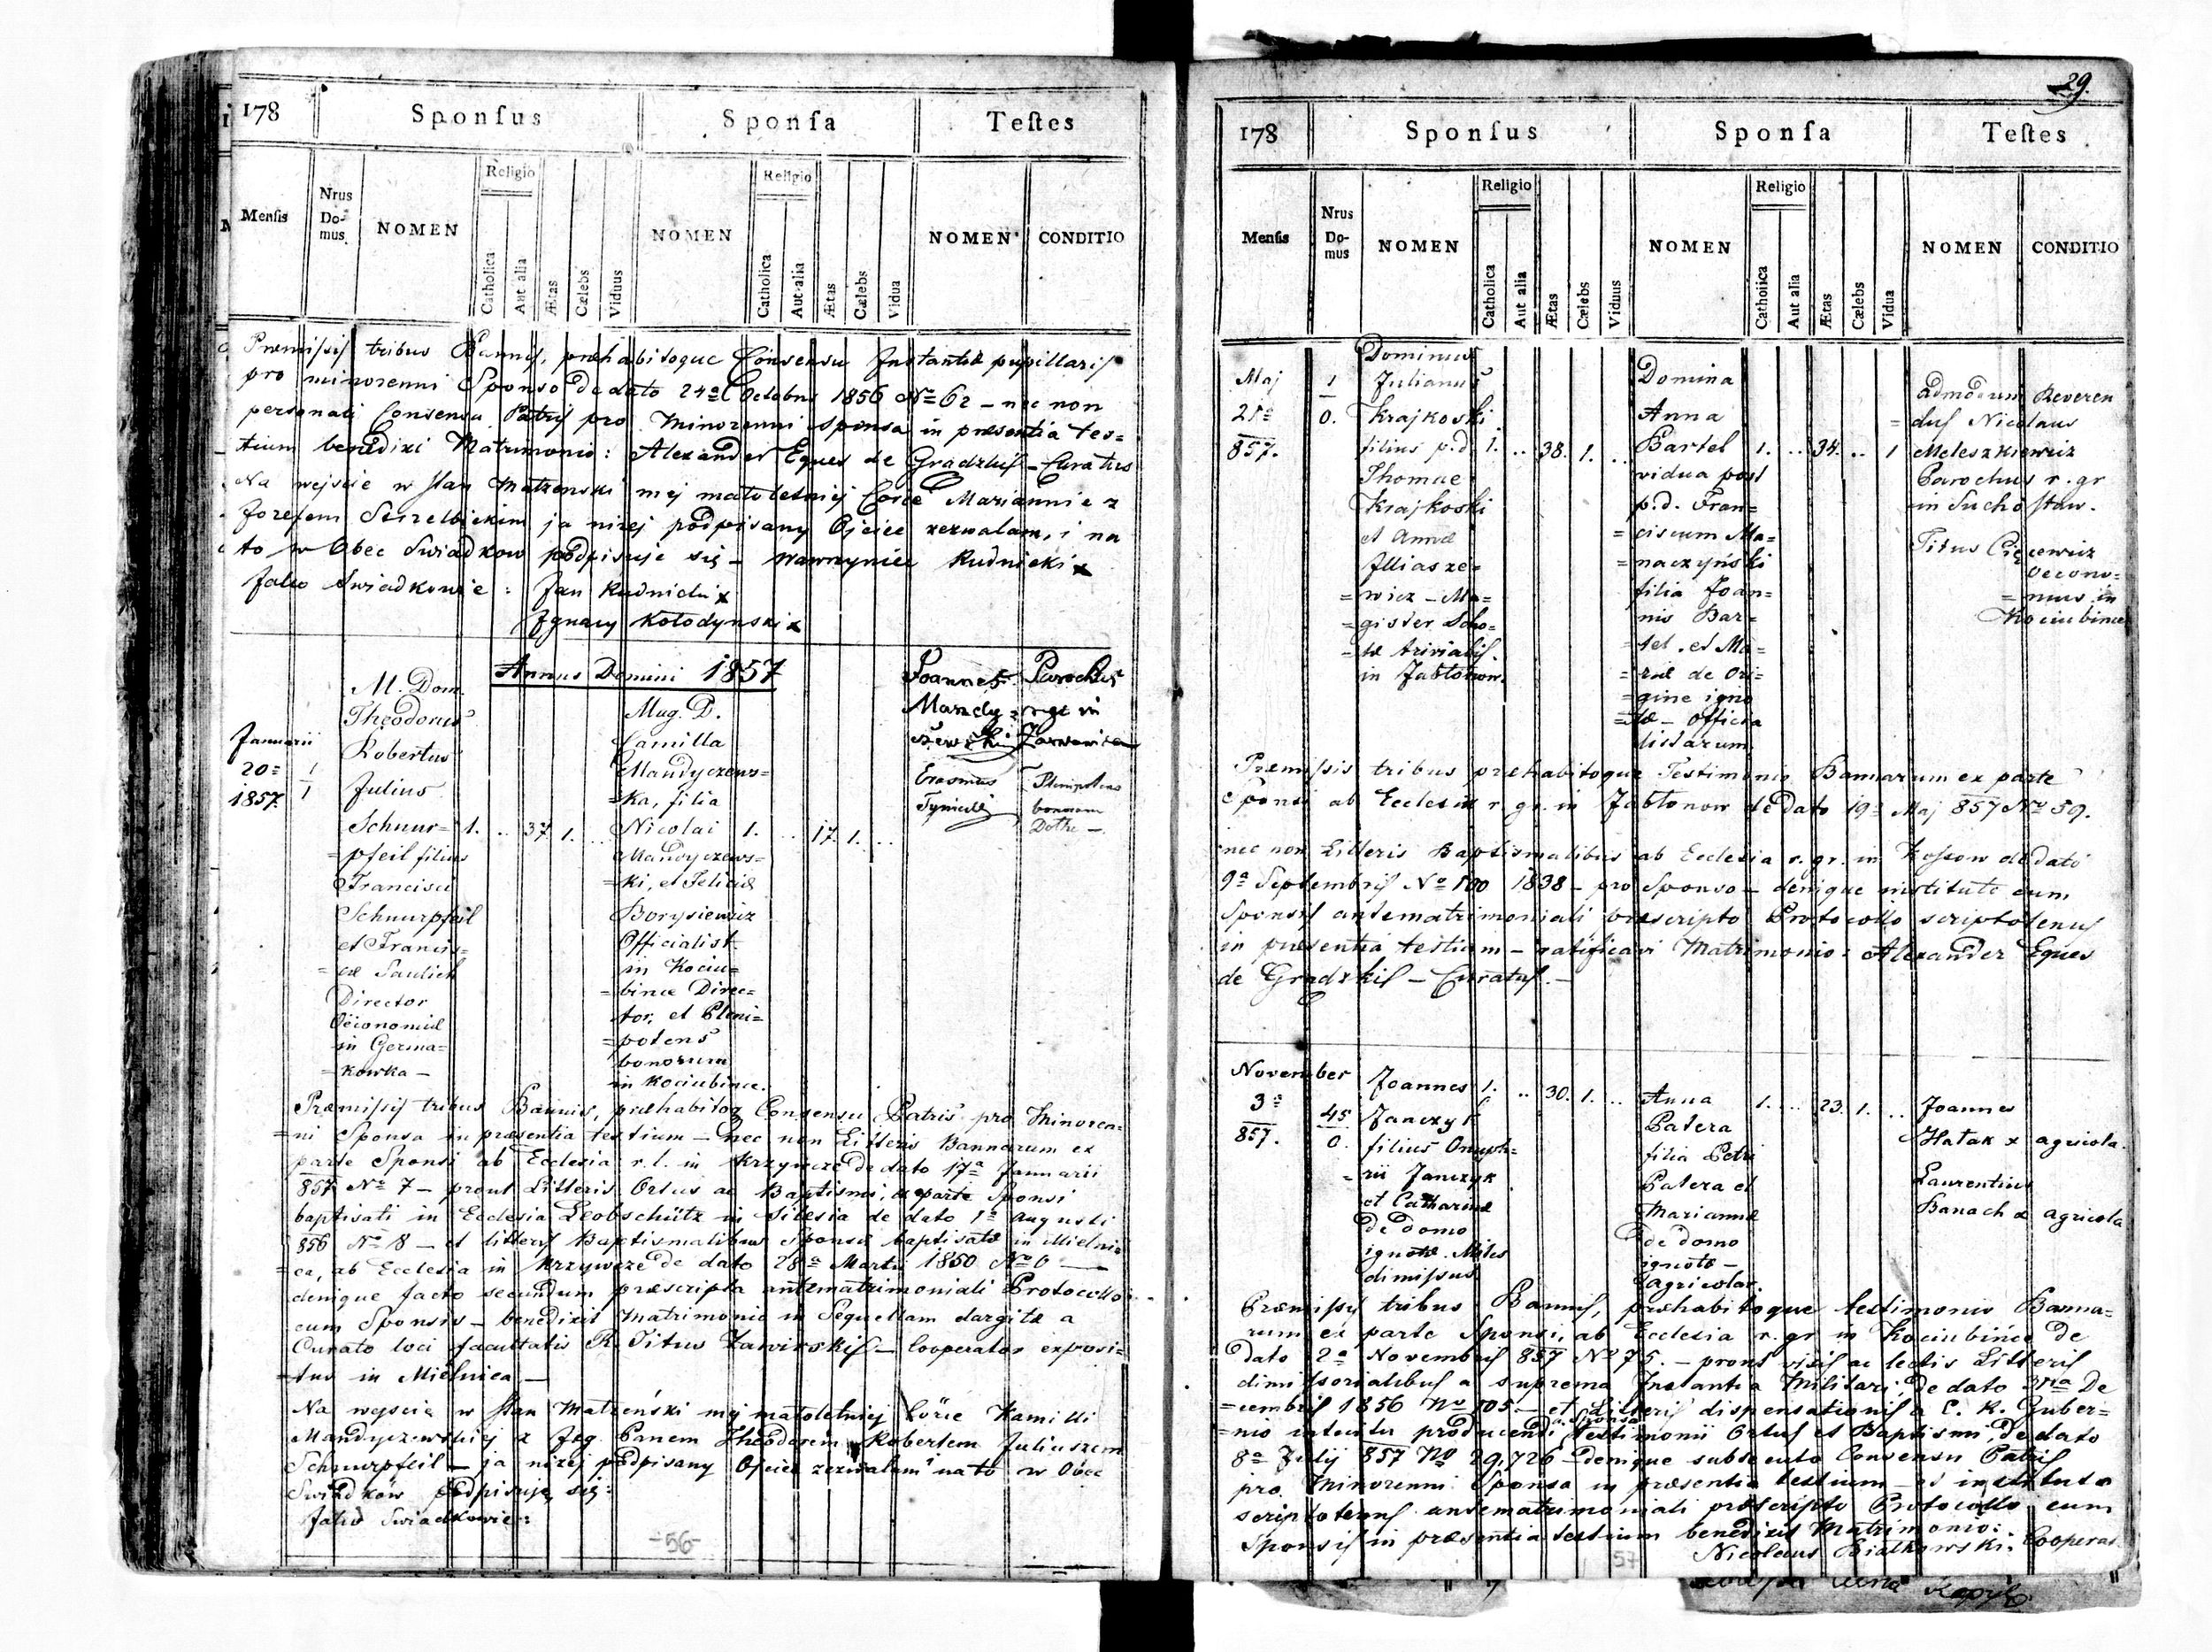 178 Sponſus Sponſa Teſtes
Menſis Nrus Do- mus. NOMEN Religio Catholica Aut alia Ætas Cælebs Viduus NOMEN Religio Catholica Aut alia Ætas Cælebs Vidua NOMEN CONDITIO
Præmiſsiſ tribus Banniſ, præhabitoque Consensu Instantiæ pupillariſ
pro minorenni Sponso de dato 24a Octobris 1856 No 62 – nec non
personali Consensu Patriſ pro Minorenni sponsa in præsentia tes=
tium benedixi Matrimonio: Alexander Eques de Gradzkiſ – Curatus
Na wejście w stan Małżenski mej małoletniej Corce Mariannie z
Jozefem Strzelbickim ja niżej podpisany Ojciec zezwalam, i na
to w Obec Swiadkow podpisuje się – Wawrzyniec Rudnicki x
Jako Swiadkowie: Jan Rudnicki x
Ignacy Kołodynski x
Annus Domini 1857
Januarii
20=
1857.
1
1
M. Dom.
Theodorus
Robertus
Julius
Schnur=
=pfeil filius
Francisci
Schnurpfeil
et Francis=
=cæ Saulich
Director
Oeconomiæ
in Germa=
=kowka –
1. .. 37. 1. ..
Mag. D.
Camilla
Mandyczews=
=ka, filia
Nicolai
Mandyczews=
=ki, et Feliciæ
Borysiewicz
Officialist.
in Kociu=
=bince Direc=
=tor, et Pleni=
=potens
bonorum
in Kociubince.
1. .. 17. 1. ..
Joannes Parochus
Mandy= r. gr. in
czewski
Erasmus Plenipotens
bonorum
Præmiſsiſ tribus Bannis, præhabitoq Consensu Patris pro Minoren=
=ni Sponsa in præsentia testium – nec non Litteris Bannorum ex
parte Sponsi ab Ecclesia r. l. in Krzywcze de dato 17a Januarii
857 No 7 – prout Litteris Ortus ac Baptismi, ex parte Sponsi
baptisati in Ecclesia Leobschütz in Silesia de dato 1a Augusti
856 No 8 – et litteriſ Baptismalibus Sponsæ baptisatæ in Mielni=
=ca, ab Ecclesia in Krzywcze de dato 28a Martii 1850 No 6 —
denique facto secundum præscripta antematrimoniali Protocollo
cum Sponsis – benedixit Matrimonio in Sequellam largitæ a
Curato loci facultatis R. Titus Zawirskiſ – Cooperator exposi=
=tus in Mielnica —
Na wejście w stan Małżeński mej małoletniej Córce Kamilli
Mandyczewskiej z Jeg. Panem Theodorem Robertem Juliuszem
Schnurpfeil – ja niżej podpisany Ojciec zezwalam na to w Obec
Swiadków podpisuję się:
Jako Swiadkowie:
-56-
29.
178 Sponſus Sponſa Teſtes
Menſis Nrus Do- mus NOMEN Religio Catholica Aut alia Ætas Cælebs Viduus NOMEN Religio Catholica Aut alia Ætas Cælebs Vidua NOMEN CONDITIO
Maj
21a
857.
1
0.
Dominus
Julianus
Krajkoski
filius p.d.
Thomae
Krajkoski
et Annæ
Illiasze=
=wicz – Ma=
=gister Scho=
=læ trivialiſ
in Jabłonow.
1. .. 38. 1. ..
Domina
Anna
Bartel
vidua post
p.d. Fran=
=ciscum Ma=
=naczyński
filia Joan=
nis Bar=
=tel. et Ma=
=riæ de Ori=
=gine igno
=tæ – officia
listarum.
1. .. 34. .. 1
Admodum Reveren
=duſ Nicolaus
Meleszkiewicz
Parochus r. gr
in Suchostaw.
Titus
oecono=
=mus in
Kociubince
Præmiſsis tribus præhabitoque Testimonio Bannorum ex parte
Sponsi ab Ecclesia r. gr. in Jabłonow de dato 19a Maj 857 No 59.
nec non Litteris Baptismalibus ab Ecclesia r. gr. in Koſsow de dato
9a Septembriſ No 100 1838 – pro Sponso – denique instituto cum
Sponsiſ antematrimoniali præscripto Protocollo scriptotenuſ
in præsentia testium – ratificavi Matrimonio: Alexander Eques
de Gradzkiſ – Curatuſ. –
November
3a
857.
45
0.
Joannes
Janczyk
filius Onuph=
=rii Janczyk
et Catharinæ
de domo
ignotæ. Miles
dimiſsus
1. .. 30. 1. ..
Anna
Patera
filia Petri
Patera et
Mariannæ
de domo
ignotæ –
agricolar.
1. .. 23. 1. ..
Joannes
Hałak x agricola.
Laurentius
Banach x agricola
Præmiſsiſ tribus Banniſ, præhabitoque testimonio Banno=
rum ex parte Sponsi, ab Ecclesia r. gr in Kociubińce de
dato 2a Novembriſ 857 No 75. – prout visiſ ac lectis Litteriſ
dimiſsorialibuſ a suprema Instantia Militari, de dato 31ma De
=cembriſ 1856 No 105 – et Litteriſ dispensationiſ a C. K. Guber=
=nio intuitu producendi a Sponso testimonii Ortuſ et Baptismi, de dato
8a Julij 857 No 29,726 – denique subsecuto Consensu Patriſ
pro Minorenni Sponsa in præsentia testium – et instituto
scriptotenuſ antematrimoniali præscripto Protocollo cum
Sponsiſ in præsentia testium benedixit Matrimonio:
Nicolaus Białkowski. Cooperat.
57